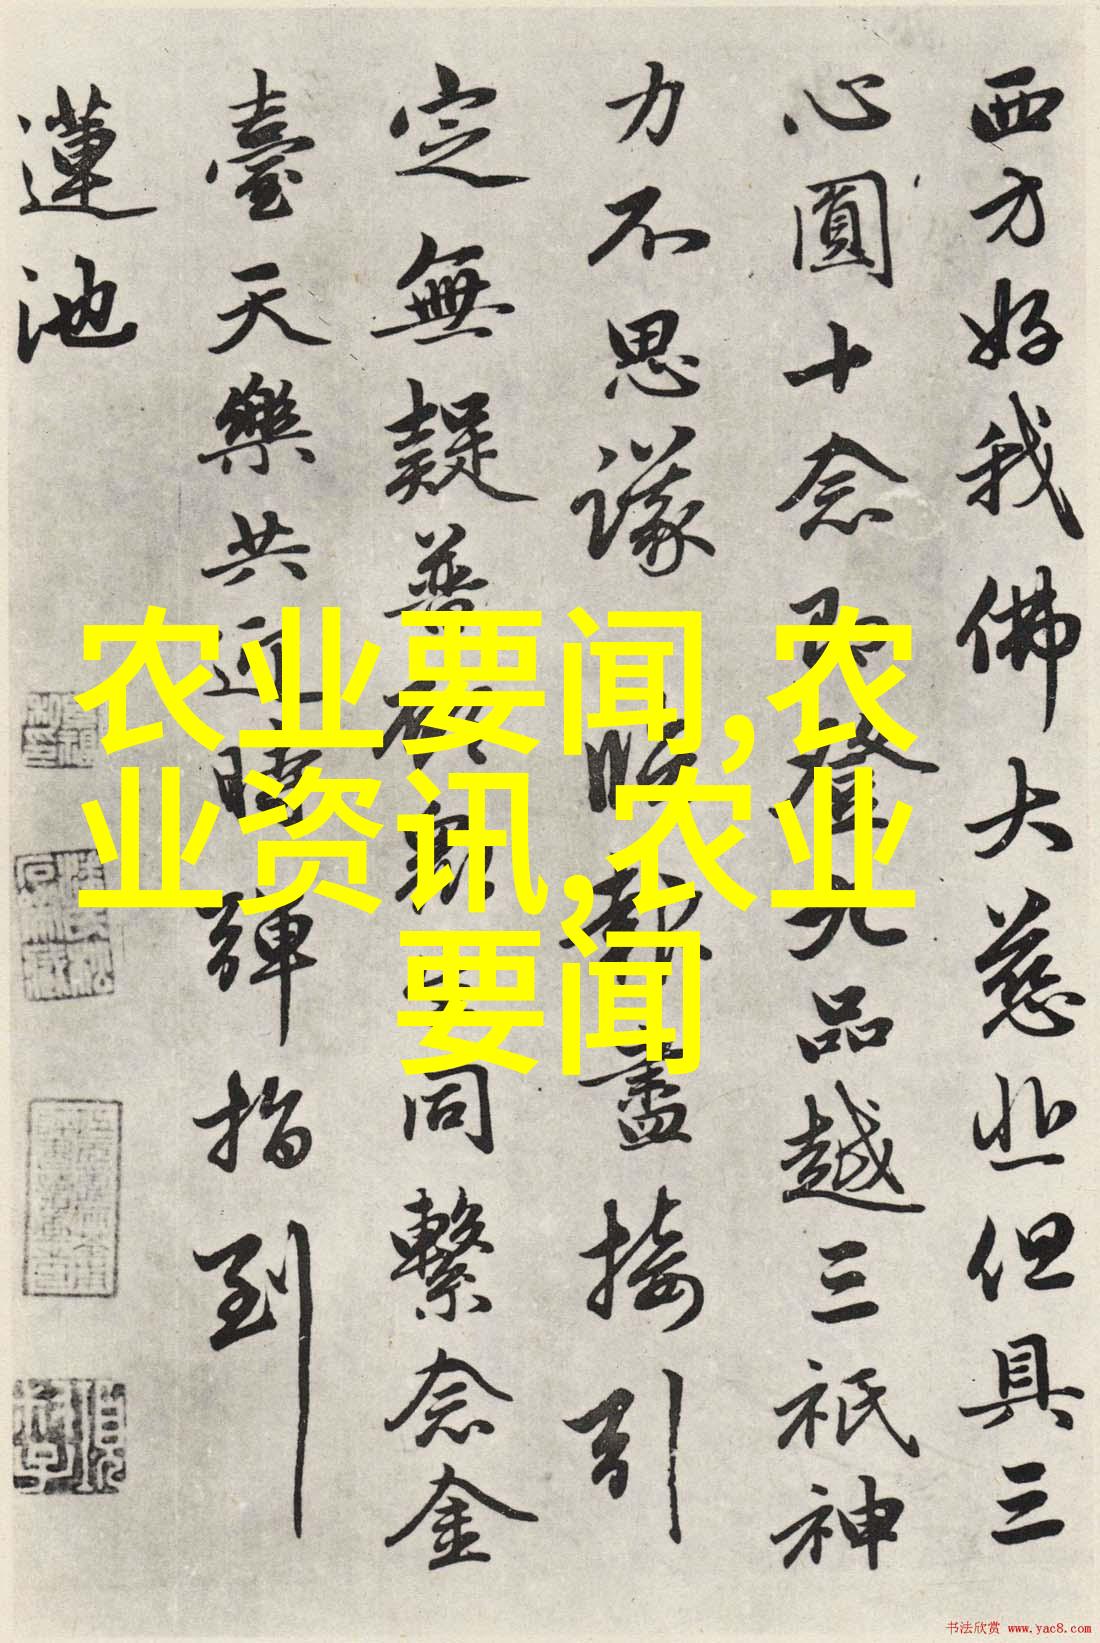 西方好我佛大慈悲但具三
心圓十念即登九品越三祇神
力不思議臨報盡接引
定無疑普同繫念金
臺天樂共迎時彈指到
蓮池
农业要闻,农
业资讯,农业
要闻
书法欣赏 www.yac8.com